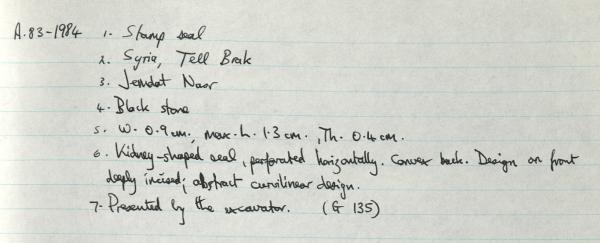 A.83-1984 1. Stamp seal
2. Syria, Tell Brak
3. Jemdat Nasr
4. Black stone
5. W. 0.9 cm., max. L. 1.3 cm., Th. 0.4 cm.
6. Kidney-shaped seal, perforated horizontally. Convex back. Design on front
deeply incised; abstract curvilinear design.
7. Presented by the excavator. (G 135)